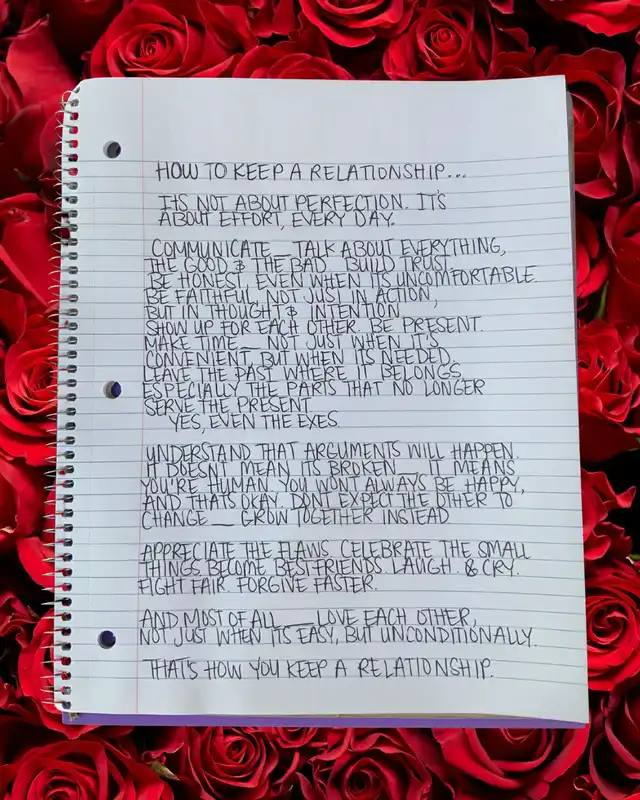 HOW TO KEEP A RELATIONSHIP...
ITS NOT ABOUT PERFECTION. IT'S
ABOUT EFFORT, EVERY DAY.
COMMUNICATE__ TALK ABOUT EVERYTHING,
THE GOOD & THE BAD. BUILD TRUST.
BE HONEST, EVEN WHEN ITS UNCOMFORTABLE.
BE FAITHFUL, NOT JUST IN ACTION,
BUT IN THOUGHT & INTENTION.
SHOW UP FOR EACH OTHER. BE PRESENT.
MAKE TIME__ NOT JUST WHEN IT'S
CONVENIENT, BUT WHEN ITS NEEDED.
LEAVE THE PAST WHERE IT BELONGS,
ESPECIALLY THE PARTS THAT NO LONGER
SERVE THE PRESENT.
YES, EVEN THE EXES.
UNDERSTAND THAT ARGUMENTS WILL HAPPEN.
IT DOESNT MEAN ITS BROKEN__ IT MEANS
YOU'RE HUMAN. YOU WONT ALWAYS BE HAPPY,
AND THATS OKAY. DONT EXPECT THE OTHER TO
CHANGE__ GROW TOGETHER INSTEAD.
APPRECIATE THE FLAWS. CELEBRATE THE SMALL
THINGS. BECOME BESTFRIENDS. LAUGH. & CRY.
FIGHT FAIR. FORGIVE FASTER.
AND MOST OF ALL___ LOVE EACH OTHER,
NOT JUST WHEN ITS EASY, BUT UNCONDITIONALLY.
THAT'S HOW YOU KEEP A RELATIONSHIP.